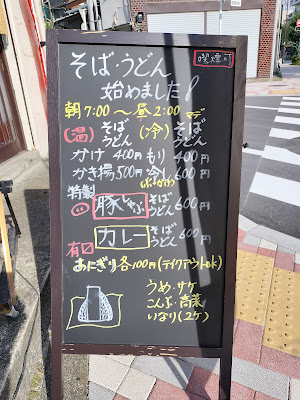 喫煙可
そば・うどん
始めました!
朝7:00〜昼2:00マデ
(温) そば うどん (冷) そば うどん
かけ 400円 もり 400円
かき揚 500円 冷し 600円
特製
豚しゃぶ そば うどん 600円
カレー そば うどん 600円
おにぎり各100円(テイクアウトok)
うめ・サケ
こんぶ・高菜
いなり(2ケ)